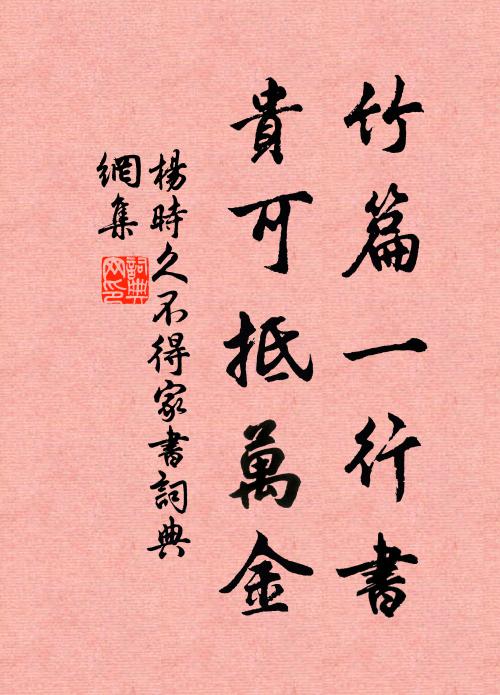 竹篇一行書
貴可抵萬金
楊時久不得家書詞典
網集
詞典網印